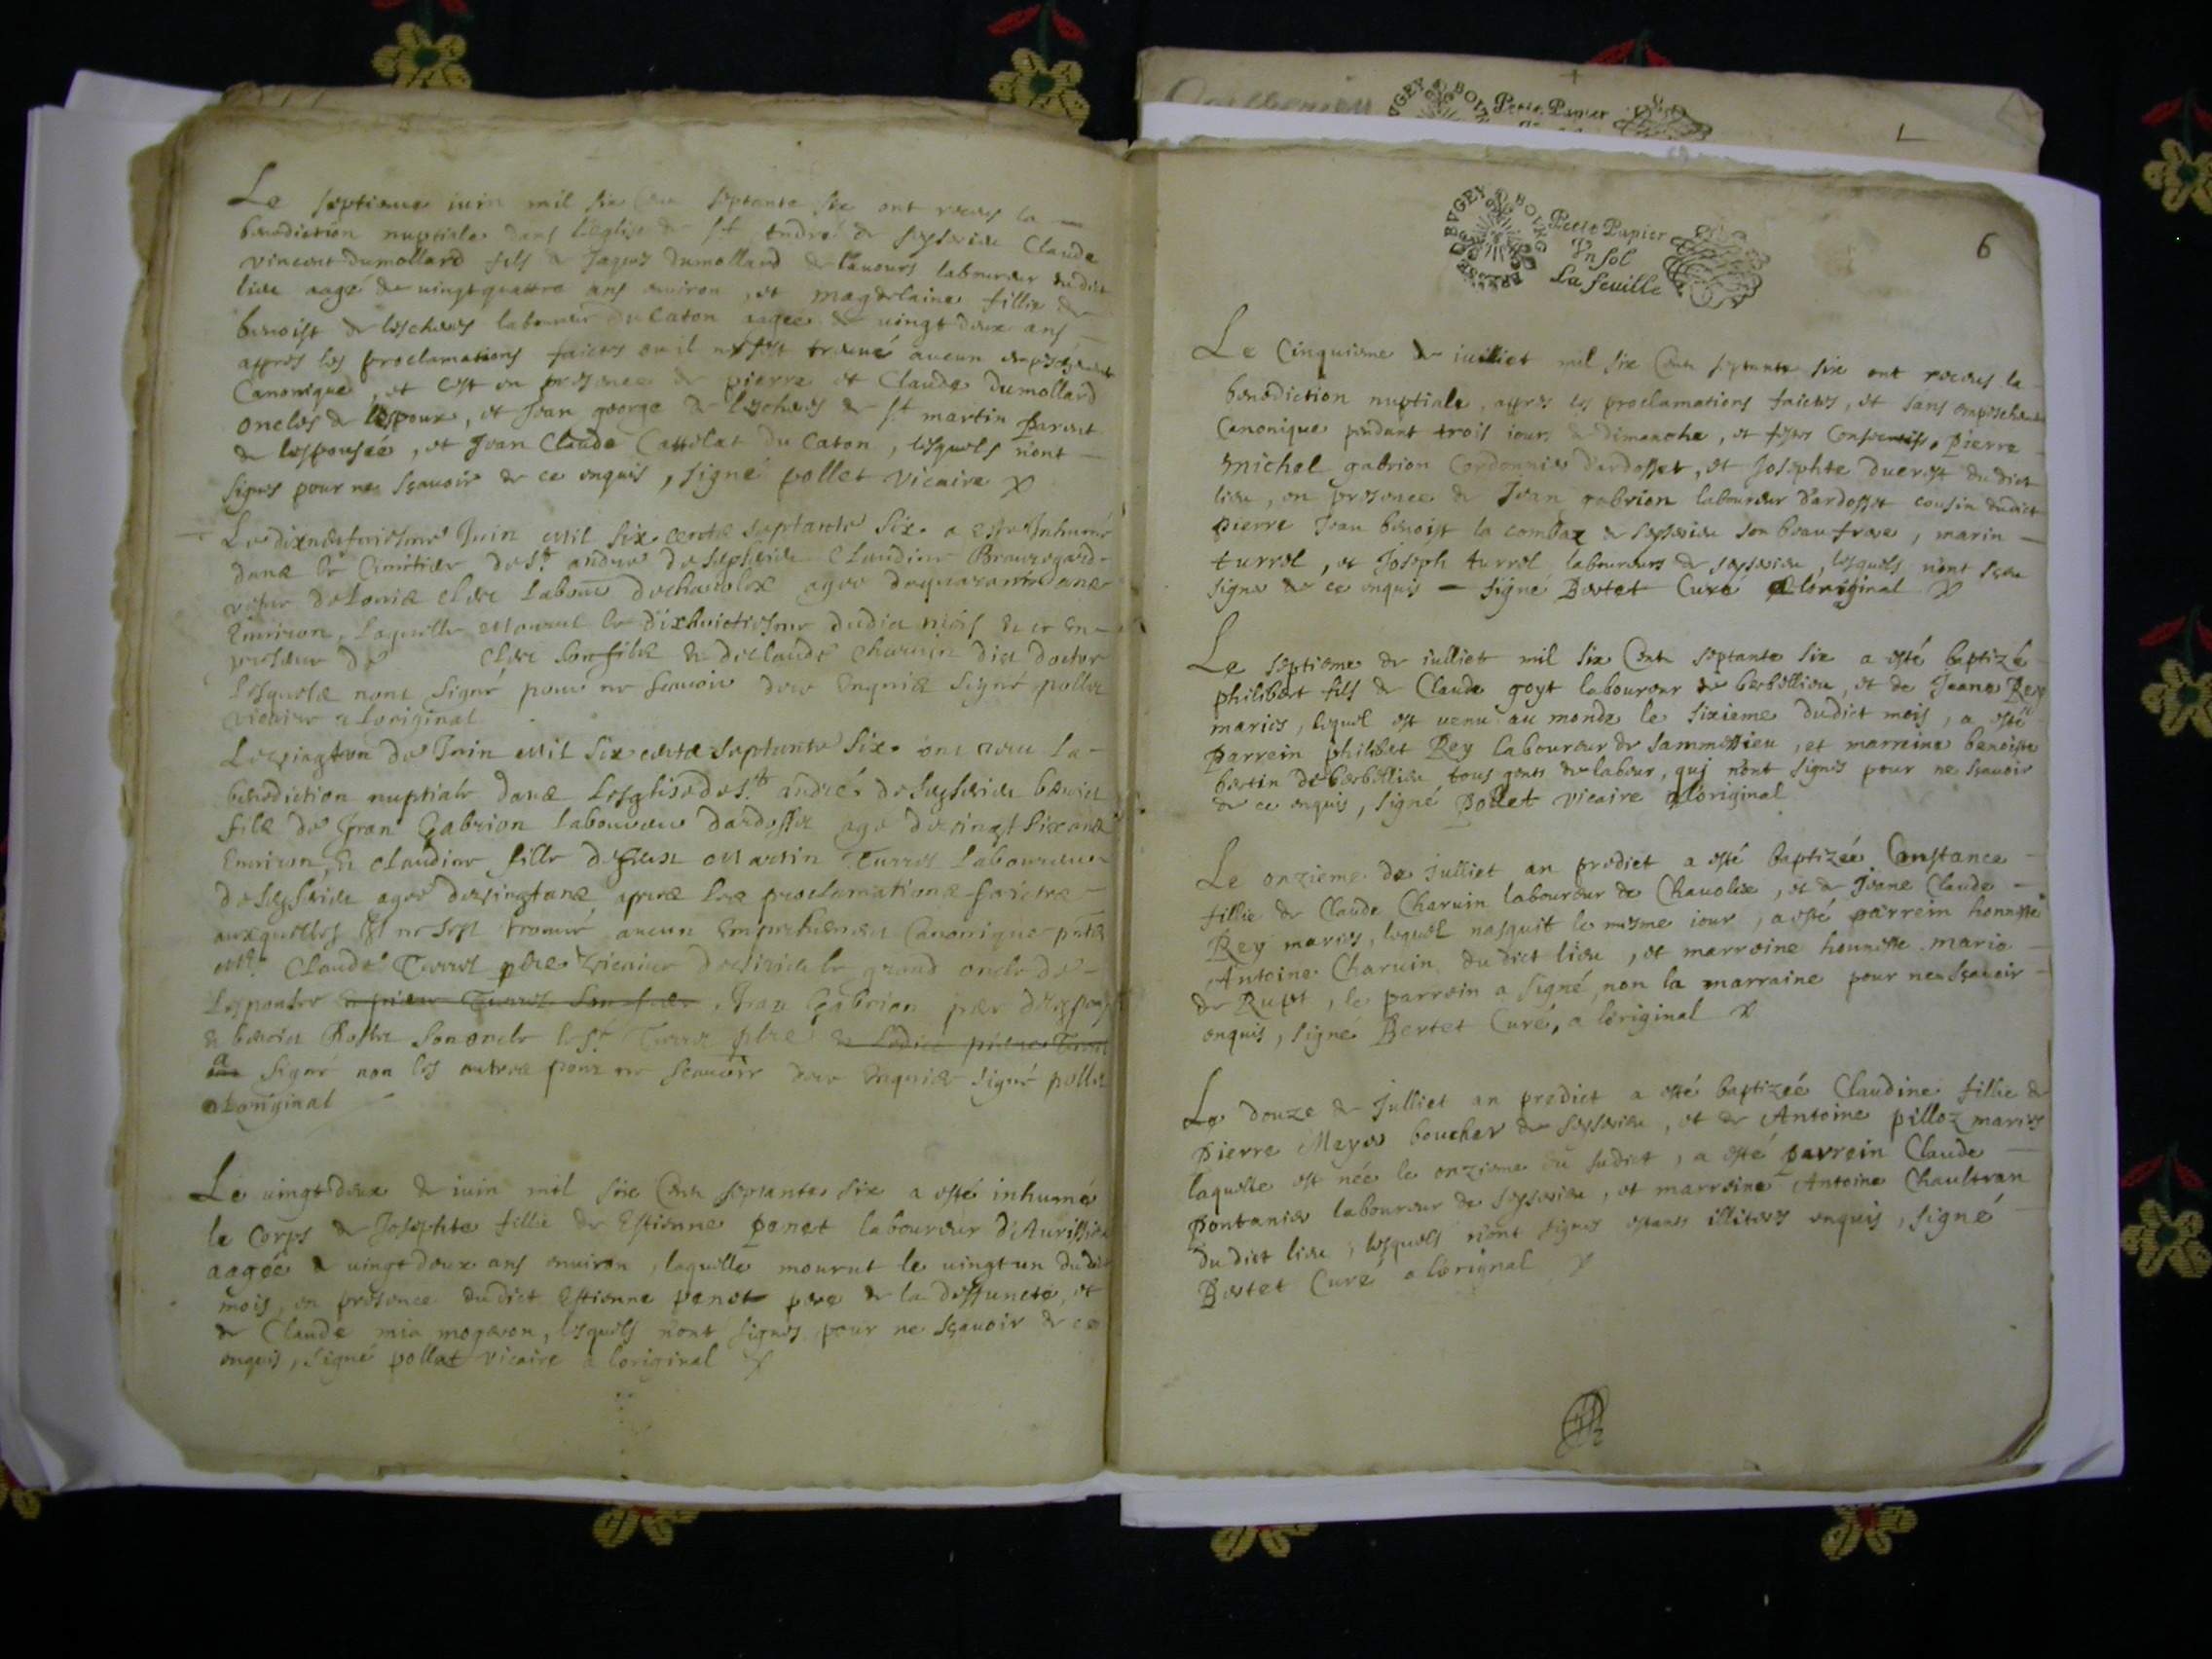 Le septieme iuin mil six Cent septante six ont receus la
benediction nuptiale dans l'Eglise de St André de seysseieu Claude
vincent dumollard fils de Jaques dumollard de lauours laboureur dudict
lieu aagé de uingtquattre ans enuiron, et magdelaine fillie de
benoist de leschaux laboureur du Caton aagee de uingt deux ans
appres les proclamations faictes ou il ne sest treuué aucun empeschement
Canonique, et cest en presence de pierre et Claude dumollard
oncles de lespoux, et Jean george de leschaux de St martin parent
de lespouseé, et Jean Claude Cattilat du Caton, lesquels n'ont
signes pour ne sçauoir de ce enquis, signé pollet vicaire
Le dixneufuiesme Juin mil six centz septante six a esté Inhumé
dans le Cimitiere de St andre de seysseieu Claudine Beauregard
vefue de Louis labour de chauolex agee de quarante ans
Enuiron, Laquelle mourut le dixhuictiesme dudict mois & ce en
presence de son filz & de claude charuin dict doctor
Lesquelz nont signé pour ne scauoir de ce Enquis signé pollet
vicaire a Loriginal
Le vingtun de Juin mil six centz septante six ont receu la
benediction nuptiale dans Lesglise de St andré de seysseieu benoict
filz de Jean Gabrion laboureur dardosset agé de vingt six ans
Enuiron, & claudine fille de feu martin Turrel Laboureur
de seysseieu agee de vingt ans apres les proclamations faictes
auxquelles Il ne sest trouué aucun Empeschement Canonique
Mre Claude Turrel pbre vicaire de virieu le grand oncle de
Lespouse & pierre Turrel son frere, Jean Gabrion pere de lespoux
& benoict Rosset son oncle le Sr Turrel pbre & Ledict pierre Turrel
a signé non les autres pour ne scauoir de ce Enquis signé pollet
a Loriginal
Le uingtdeux de iuin mil six Cent septante six a esté inhumé
le Corps de Josephte fillie de Estienne panet laboureur d'Aurissieu
aageé de uingt deux ans enuiron, laquelle mourut le uingt un dudict
mois, en presence dudict Estienne panet pere de la deffuncte, et
de Claude mia mogeron, lesquels n'ont signes pour ne sçauoir de ce
enquis, signé pollet vicaire a loriginal
BRESSE BVGEY
Petit Papier
Vn sol
La feuille
6
Petit Papier
Le Cinquieme de iuilliet mil six Cent septante six ont receus la
benediction nuptiale, appres les proclamations faictes, et sans empeschement
Canonique pendant trois iours de dimanche, et festes Consecutifs, pierre
michel gabrion Cordonnier dardosset, et Josephte du dict
lieu, en presence de Jean gabrion laboureur d'ardosset cousin dudict
pierre Jean benoist la combaz de seysseieu son beau frere, marin
turrel, et Joseph turrel laboureurs de seysseieu, lesquels n'ont sceu
signer de ce enquis - signé Bertet Curé a loriginal
Le septieme de iulliet mil six Cent septante six a esté baptizé
philibert fils de Claude goyt laboureur de berbellieu, et de Jeane Rey
maries, lequel est uenu au monde le sixieme dudict mois, a esté
parrein philibert Rey laboureur de sammessieu, et marreine benoiste
bertin de berbellieu tous gents de labeur, quj n'ont signes pour ne sçauoir
de ce enquis, signé pollet vicaire a loriginal
Le onzieme de iulliet an predict a esté baptizeé Constance
fillie de Claude Charuin laboureur de Chauolex, et de Jeane Claude
Rey maries, lequel nasquit le mesme iour, a esté parrein honneste
Antoine Charuin du dict lieu, et marreine honneste marie
de Rupt, le parrein a signé, non la marraine pour ne sçauoir
enquis, signé Bertet Curé, a loriginal
Le douze de Julliet an predict a esté baptizeé Claudine fillie de
pierre Meyer boucher de seysseieu, et de Antoine pilloz maries
laquelle est née le onzieme du sudict, a esté parrein Claude
pontanier laboureur de seysseieu, et marreine Antoine Chaultran
du dict lieu, lesquels n'ont signes estants illiteres enquis, signé
Bertet Curé a lorignal